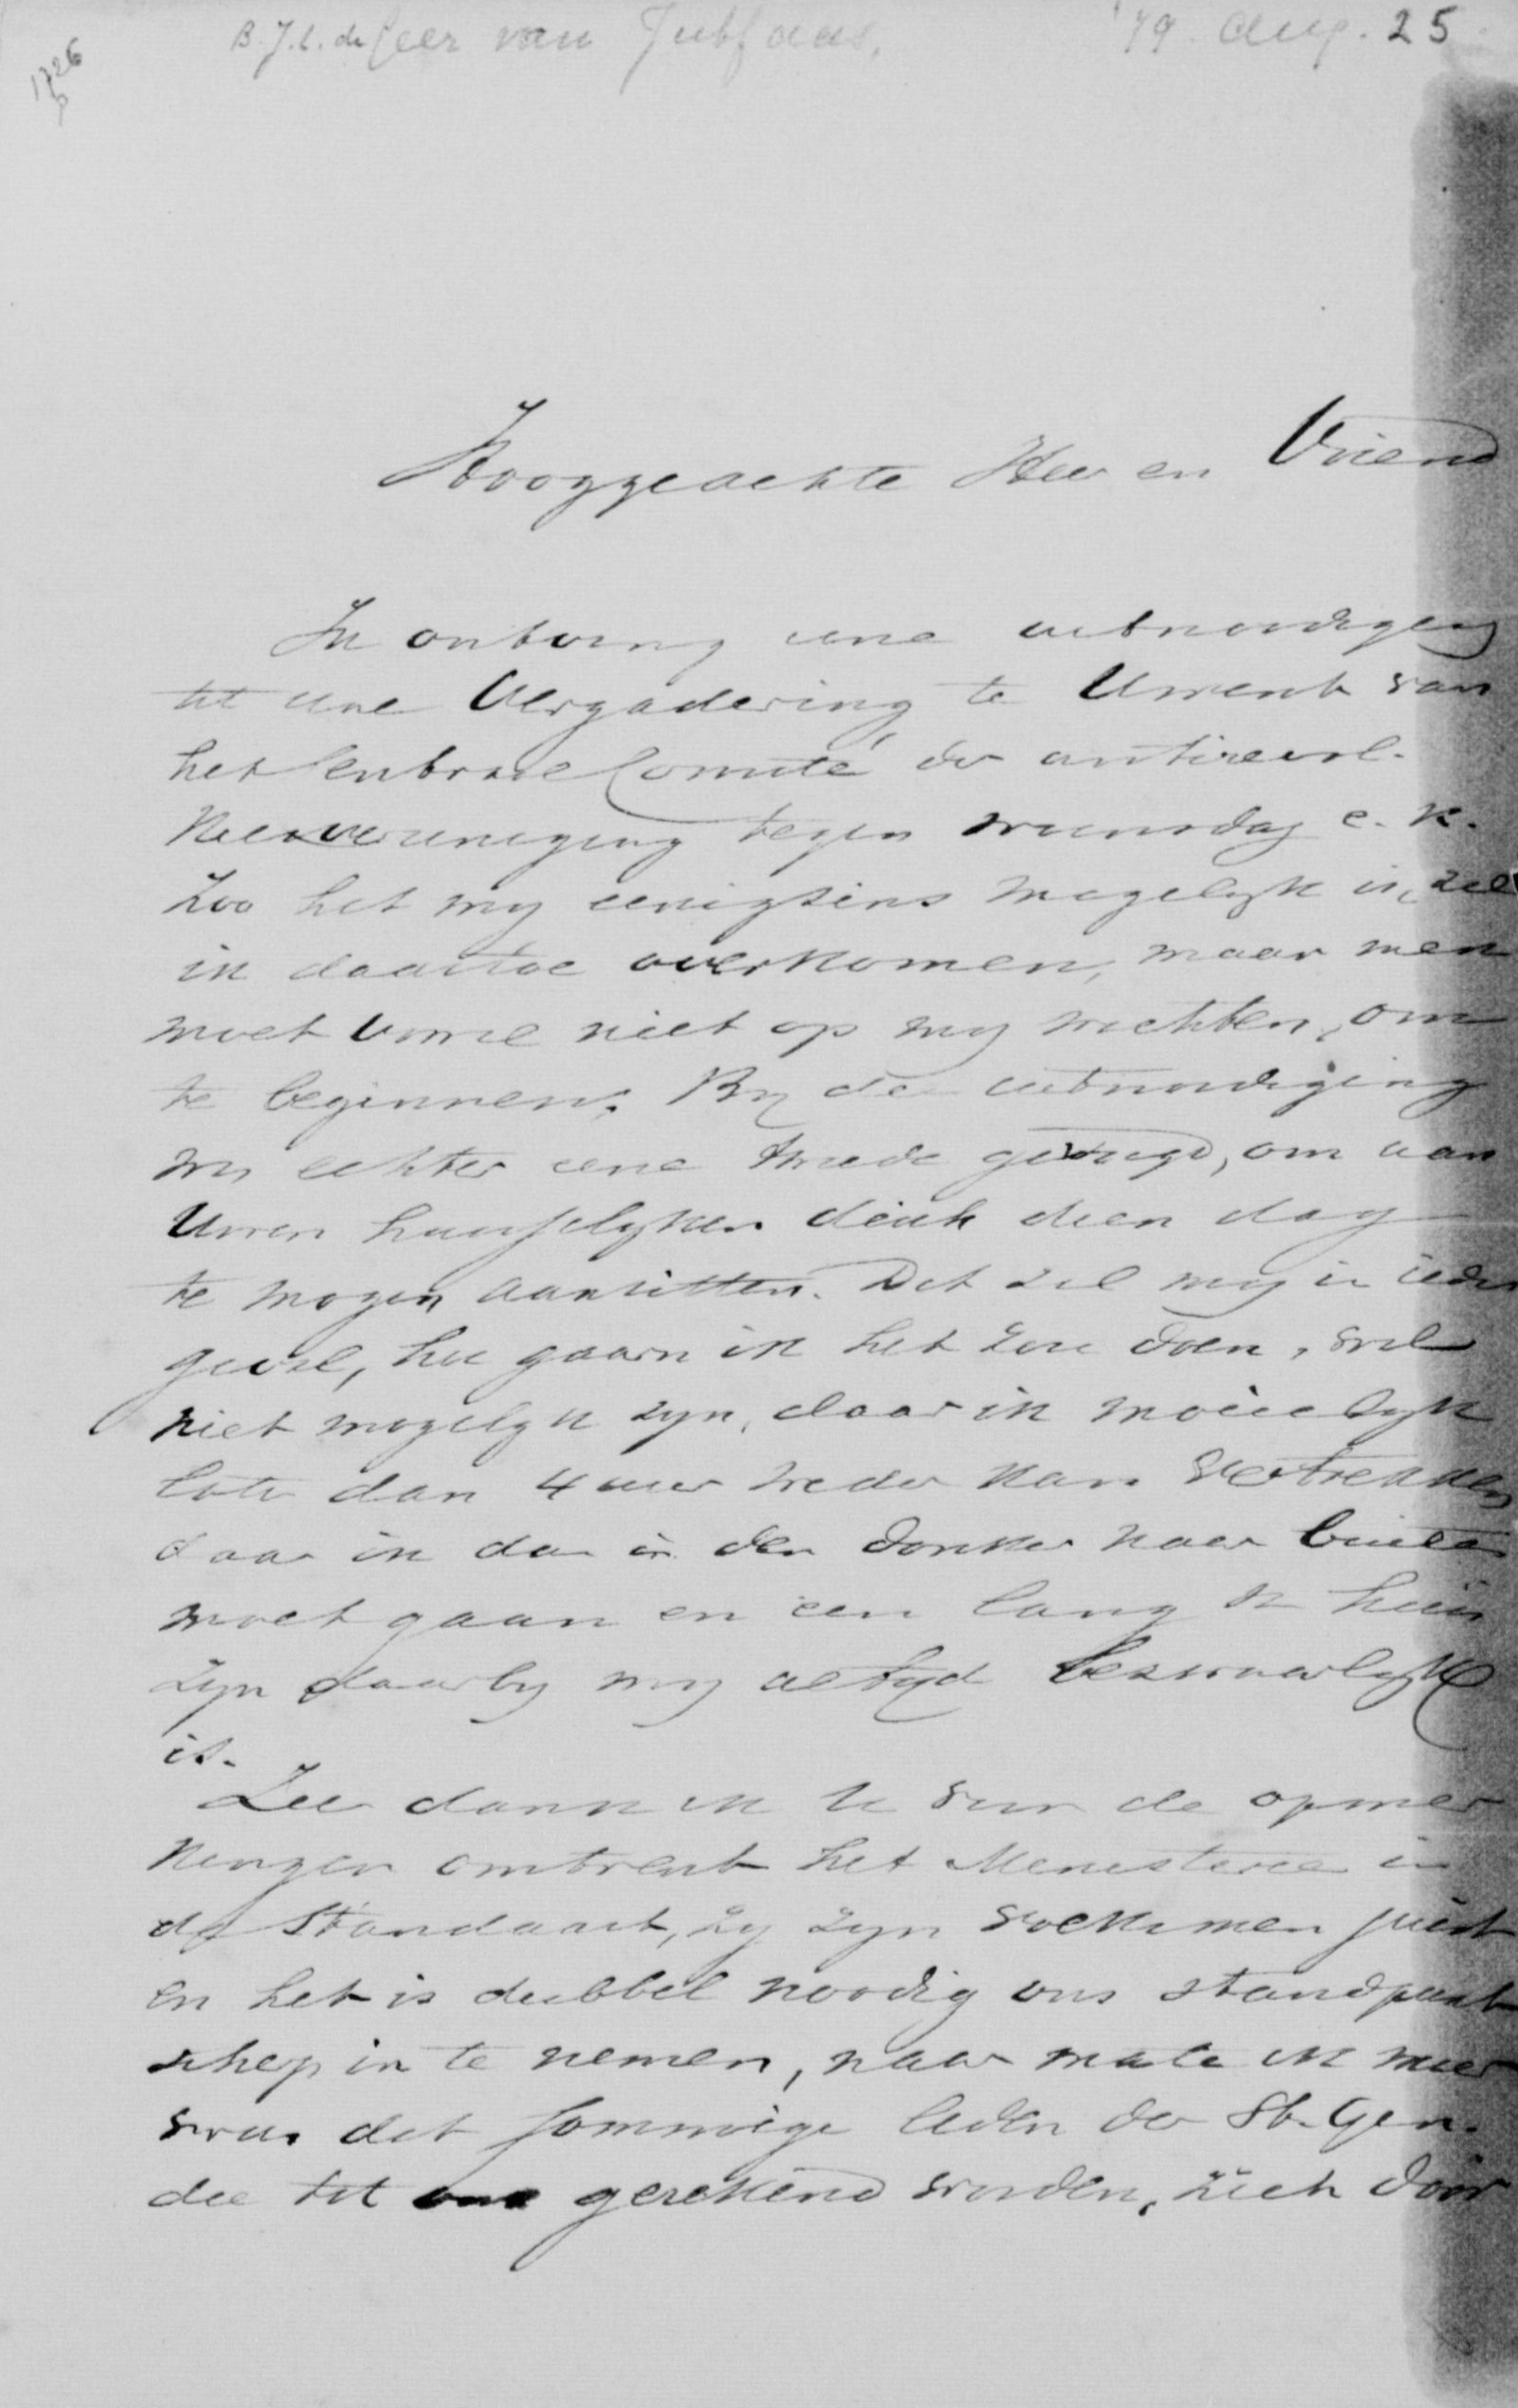 B.J.L. de Geer van Jutfaas. '79 Aug. 25
1726
Hooggeachte Heer en Vriend
Ik ontving eene uitnoodiging
tot eene Vergadering te Uwent van
het Centrale Comité der antirevol.
Kiesvereeniging tegen woensdag e.k.
Zoo het my eenigsins mogelyk is, zal
ik daartoe overkomen, maar men
moet vooral niet op my wachten, om
te beginnen. By de uitnoodiging
was echter eene tweede gevoegd, om aan
Uwen huisselyken disch dien dag
te mogen aanzitten. Dit zal my in ieder
geval, hoe gaarn ik het zou doen, wel
niet mogelyk zyn, daar ik moeielyk
later dan 4 uur weder kan vertrekken
daar ik dan in den donker naar buiten
moet gaan en een lang v huis
zyn daarby my altyd bezwaarlyk
is.
Zeer dank ik U voor de opmer
kingen omtrent het Ministerie in
de Standaart, zy zyn volkomen juist
en het is dubbel noodig ons standpunt
scherp in te nemen, naar mate ik meer
vrees dat sommige leden der St. Gen.
die tot ons gerekend worden, zich door